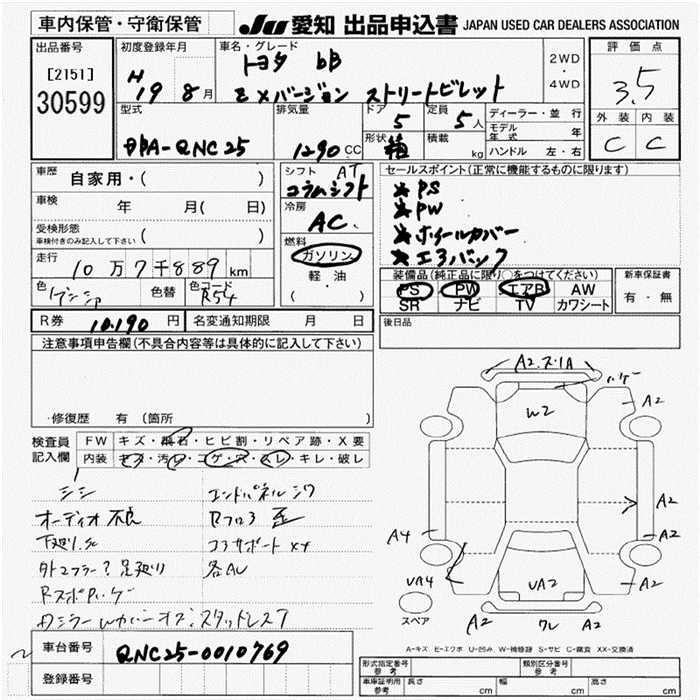 車内保管・守衛保管
JU 愛知 出品申込書 JAPAN USED CAR DEALERS ASSOCIATION
出品番号
[2151]
30599
初度登録年月
H 19 8月
車名・グレード
トヨタ bB
Z Xバージョン ストリートビレット
2WD
・
4WD
評価点
3.5
外装 内装
C C
型式
DBA-QNC25
排気量
1290 CC
ドア
5
定員
5人
形状
箱
積載
kg
ディーラー・並行
モデル年式 年
ハンドル 左・右
車歴
自家用・( )
車検
年 月( 日)
受検形態
車検付きのみ記入して下さい ( )
走行
10万7千889km
色
色替
色コード
R54
シフト AT
コラムシフト
冷房
AC
燃料
ガソリン
軽・油
( )
セールスポイント(正常に機能するものに限ります)
★PS
★PW
★ホイールカバー
★エアバック
装備品(純正品に限り○をつけてください)
PS PW エアB AW
SR ナビ TV カワシート
新車保証書
有・無
R券 10,190 円
名変通知期限 月 日
後日品
注意事項申告欄(不具合内容等は具体的に記入して下さい)
・修復歴 有 (箇所 )
検査員記入欄
FW キズ・飛石・ヒビ割・リペア跡・X要
内装 キズ・汚レ・コゲ・穴・スレ・キレ・破レ
シミ エンドパネルシワ
オーディオ不良
下廻り.SC コアサポートX4
外マフラー?足廻り 各AU
車台番号 QNC25-0010769
登録番号
A2
W2
A2
A2
A4
UA4
UA2
A2
A2
ワレ
A2
スペア
A-キズ E-エクボ U-凹み W-補修跡 S-サビ C-腐食 XX-交換済
形式指定番号
参考
類別区分番号
参考
車庫証明用
参考
長さ cm 幅 cm 高さ cm